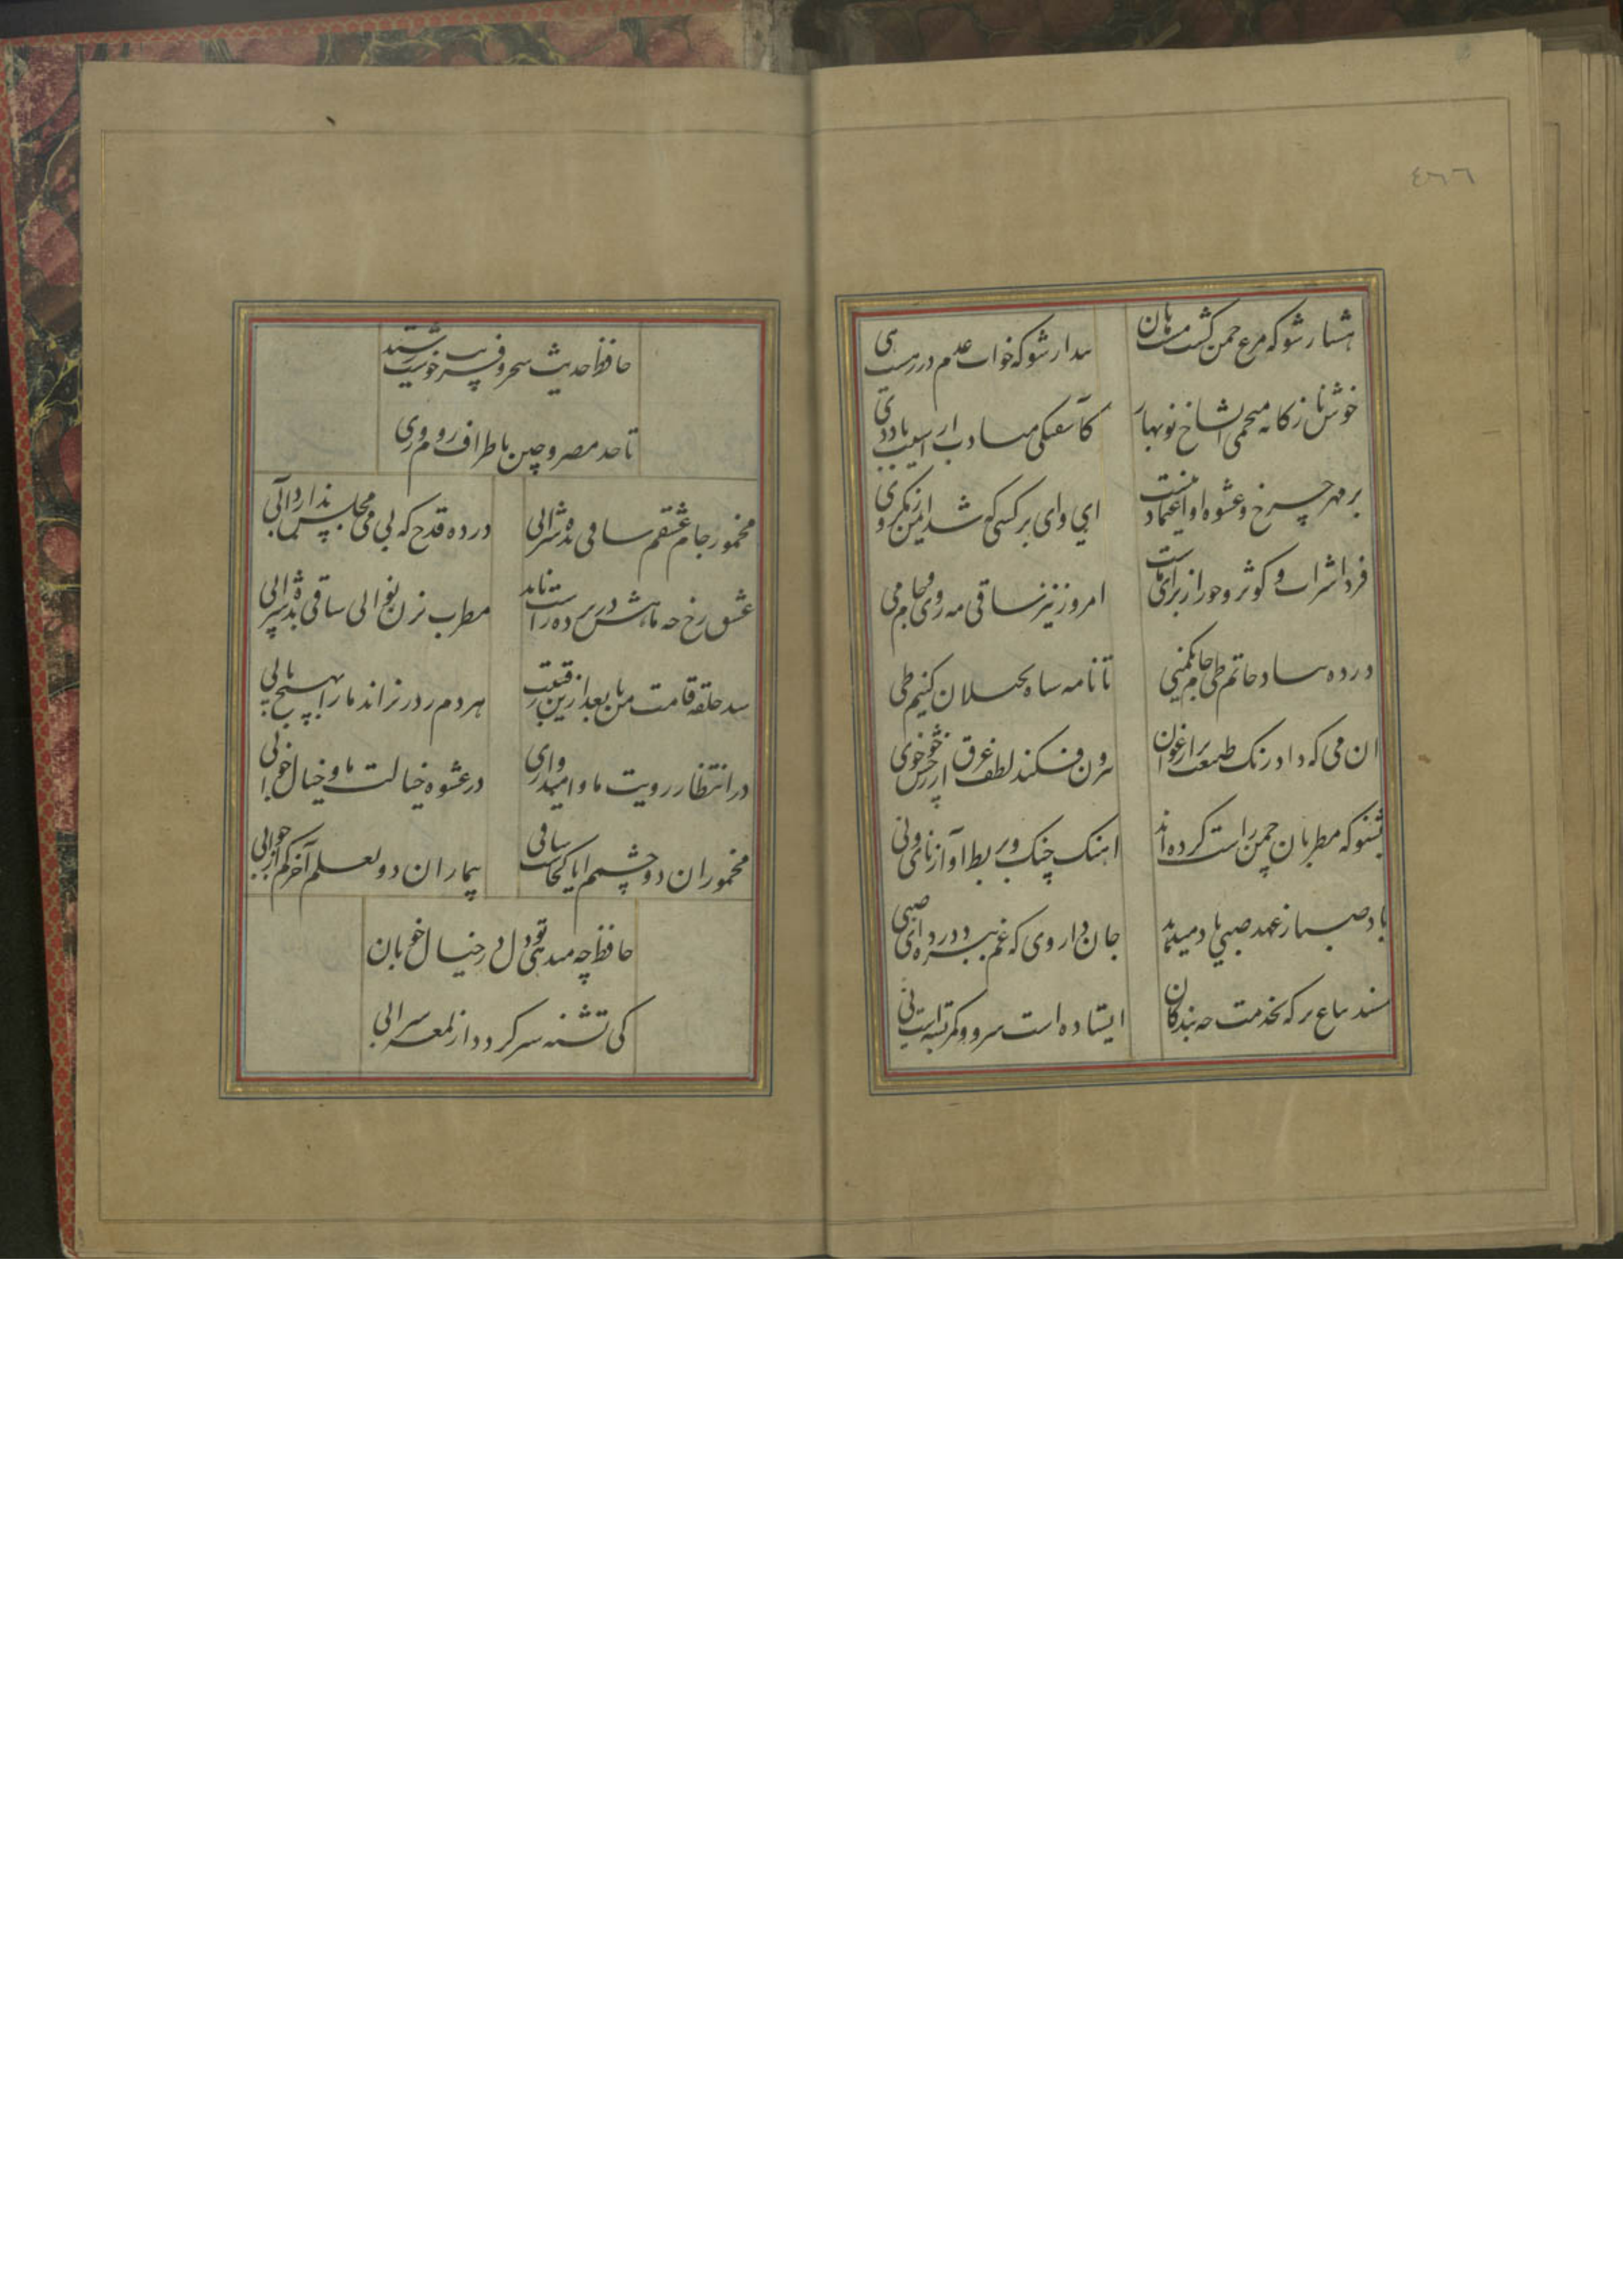 ٤٦٦
هشیار شو که مرغ چمن گشت مست هان
بیدار شو که خواب عدم در پست هی
خوش نازکانه میچمی ای شاخ نوبهار
کاشفتگی مبادت از آسیب باد دی
بر مهر چرخ و عشوه او اعتماد نیست
ای وای بر کسی که شد ایمن ز مکر وی
فردا شراب و کوثر و حور از برای ماست
امروز نیز ساقی مه روی و جام می
درده بیاد حاتم طی جام یکمنی
تا نامه سیاه بخیلان کنیم طی
ان می که داد رنک طبیعت بارغوان
بیرون فکند لطف عرق از رخش خوی
بشنو که مطربان چمن راست کرده اند
اهنک چنک و بربط و آواز نای و نی
باد صبا ز عهد صبی یاد میدهد
جان داروی که غم ببرد درده ای صبی
مسند بباغ بر که بخدمت چه بندکان
ایستاده است سرو و کمر بسته است نی
حافظ حدیث سحر و فریب خوشت رسید
تا حد مصر و چین باطراف روم و ری
مخمور جام عشقم ساقی بده شرابی
درده قدح که بی می مجلس ندارد آبی
عشق رخ چه ماهش در پرده راست ناید
مطرب بزن نوایی ساقی بده شرابی
شد حلقه قامت من تا بعد ازین رقیبت
هر دم ز در نراند ما را بهیچ بابی
در انتظار رویت ما و امیدواری
در عشوه خیالت ما و خیال خوابی
مخموران دو چشمم ایا کجاست ساقی
بیماران دو لعلم آخر کم از جوابی
حافظ چه میدهی تو دل در خیال خوبان
کی تشنه سیر کردد از لمعه سرابی